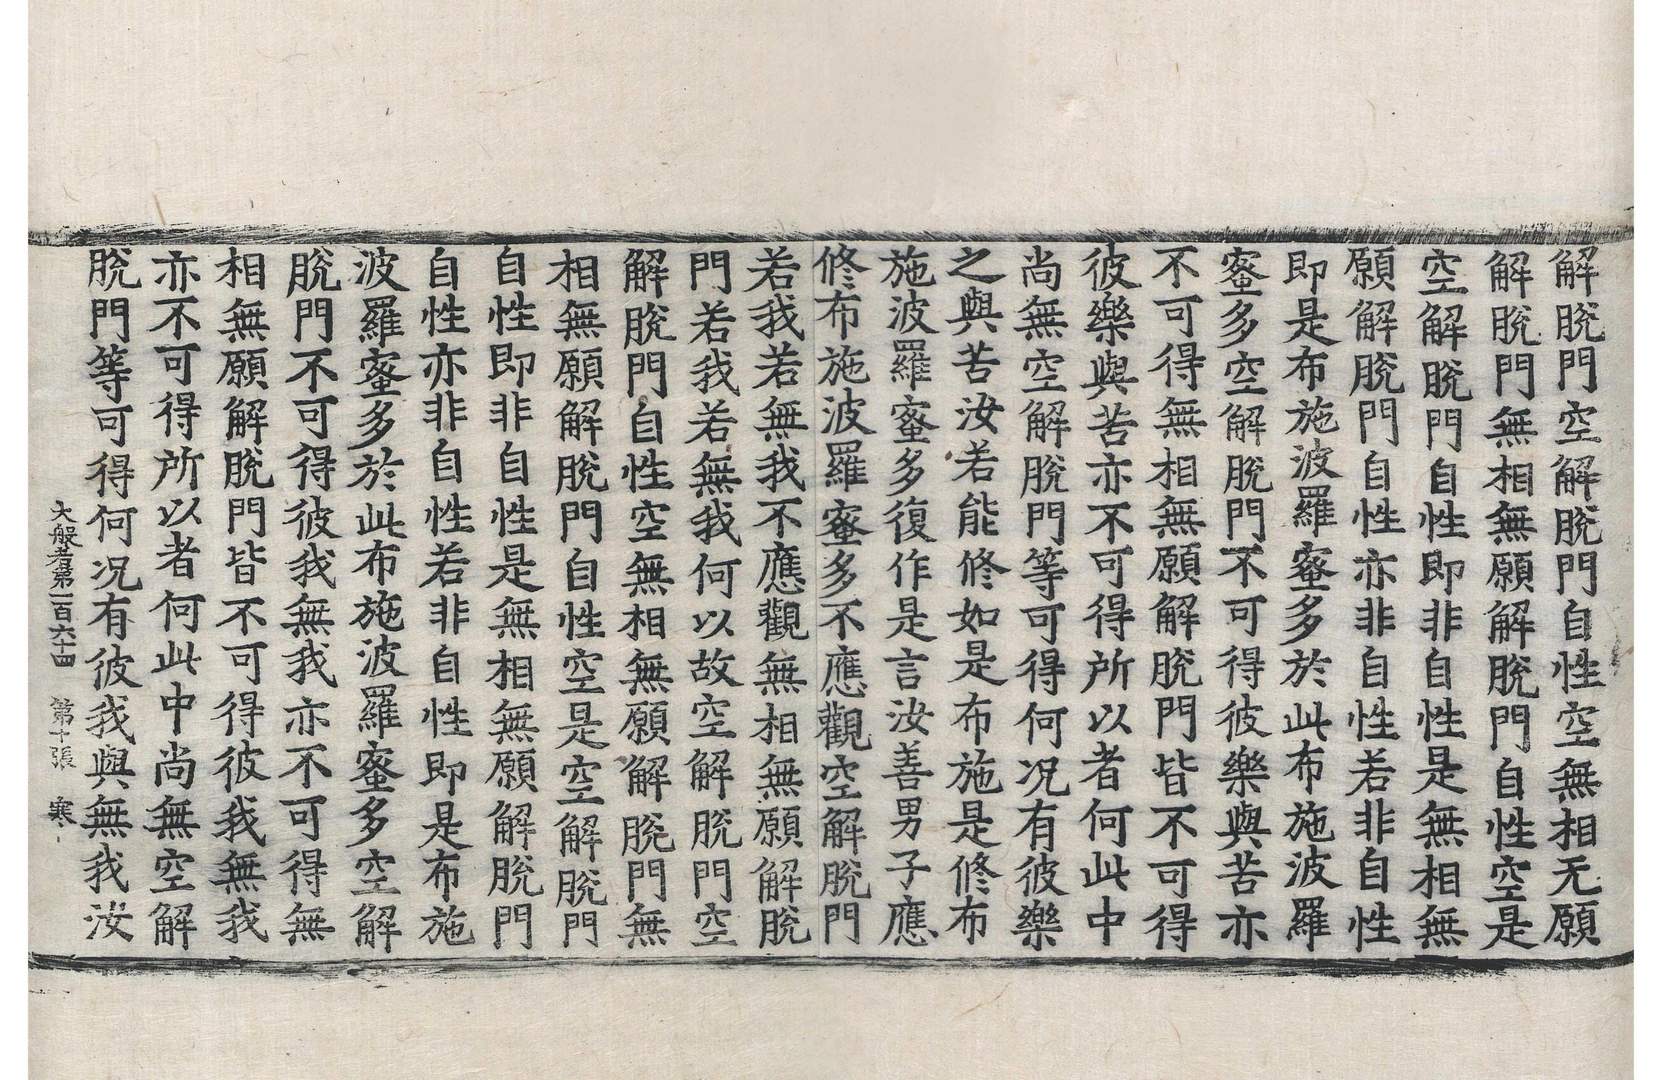 解脫門空解脫門自性空無相无願
解脫門無相無願解脫門自性空是
空解脫門自性即非自性是無相無
願解脫門自性亦非自性若非自性
即是布施波羅蜜多於此布施波羅
蜜多空解脫門不可得彼樂與苦亦
不可得無相無願解脫門皆不可得
彼樂與苦亦不可得所以者何此中
尚無空解脫門等可得何况有彼樂
之與苦汝若能修如是布施是修布
施波羅蜜多復作是言汝善男子應
修布施波羅蜜多不應觀空解脫門
若我若無我不應觀無相無願解脫
門若我若無我何以故空解脫門空
解脫門自性空無相無願解脫門無
相無願解脫門自性空是空解脫門
自性即非自性是無相無願解脫門
自性亦非自性若非自性即是布施
波羅蜜多於此布施波羅蜜多空解
脫門不可得彼我無我亦不可得無
相無願解脫門皆不可得彼我無我
亦不可得所以者何此中尚無空解
脫門等可得何况有彼我與無我汝
大般若第一百六十四 第十張 寒